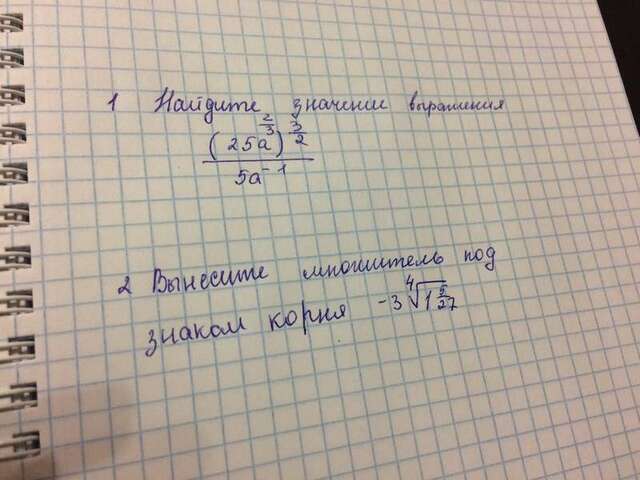 1 Найдите значение выражения
(25a^{2/3})^{3/2}
5a^{-1}
2 Вынесите множитель под
знаком корня -3 ∜1 6/27